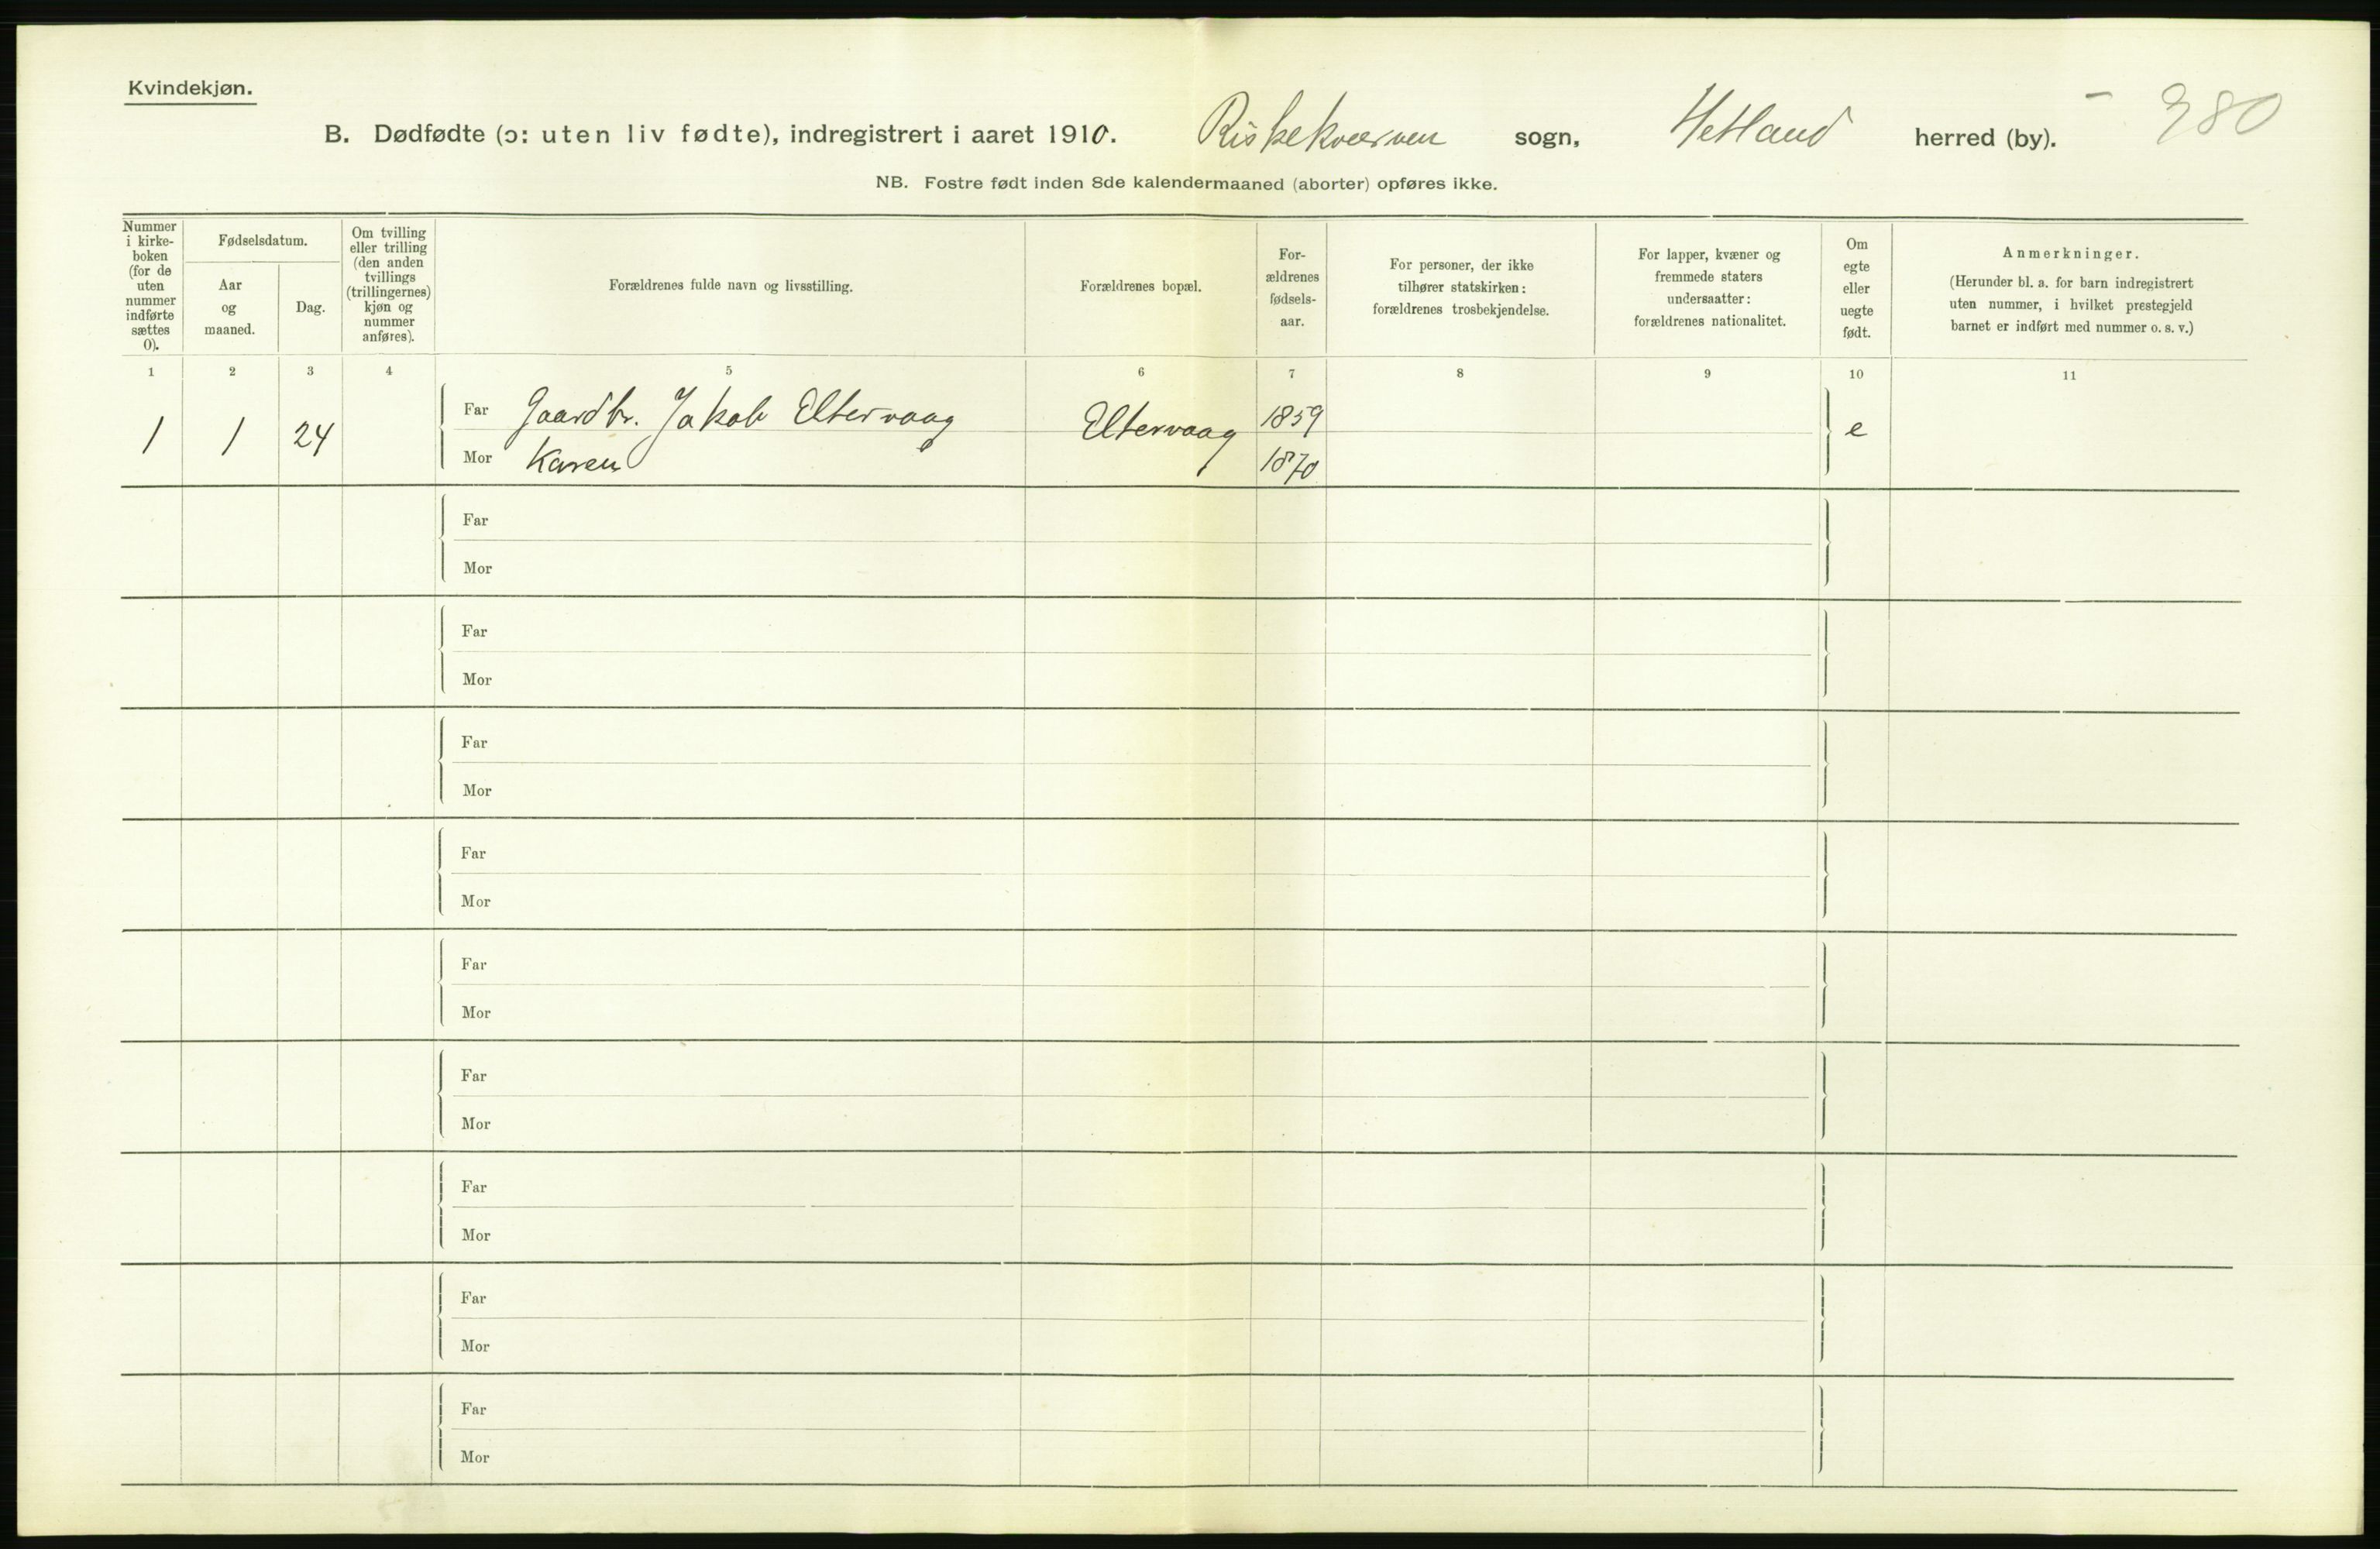 Kvindekjøn.
B. Dødfødte (ɔ: uten liv fødte), indregistrert i aaret 1910. Riskekværven sogn, Hetland herred (by). - 380
NB. Fostre født inden 8de kalendermaaned (aborter) opføres ikke.
Nummer i kirke-boken (for de uten nummer indførte sættes 0).
Fødselsdatum.
Aar og maaned.
Dag.
Om tvilling eller trilling (den anden tvillings (trillingernes) kjøn og nummer anføres).
Forældrenes fulde navn og livsstilling.
Forældrenes bopæl.
For-ældrenes fødsels-aar.
For personer, der ikke tilhører statskirken: forældrenes trosbekjendelse.
For lapper, kvæner og fremmede staters undersaatter: forældrenes nationalitet.
Om egte eller uegte født.
Anmerkninger.
(Herunder bl. a. for barn indregistrert uten nummer, i hvilket prestegjeld barnet er indført med nummer o. s. v.)
1 2 3 4 5 6 7 8 9 10 11
1 1 24 Far Gaardbr. Jakob Eltervaag Eltervaag 1859 e
Mor Karen 1870
Far
Mor
Far
Mor
Far
Mor
Far
Mor
Far
Mor
Far
Mor
Far
Mor
Far
Mor
Far
Mor